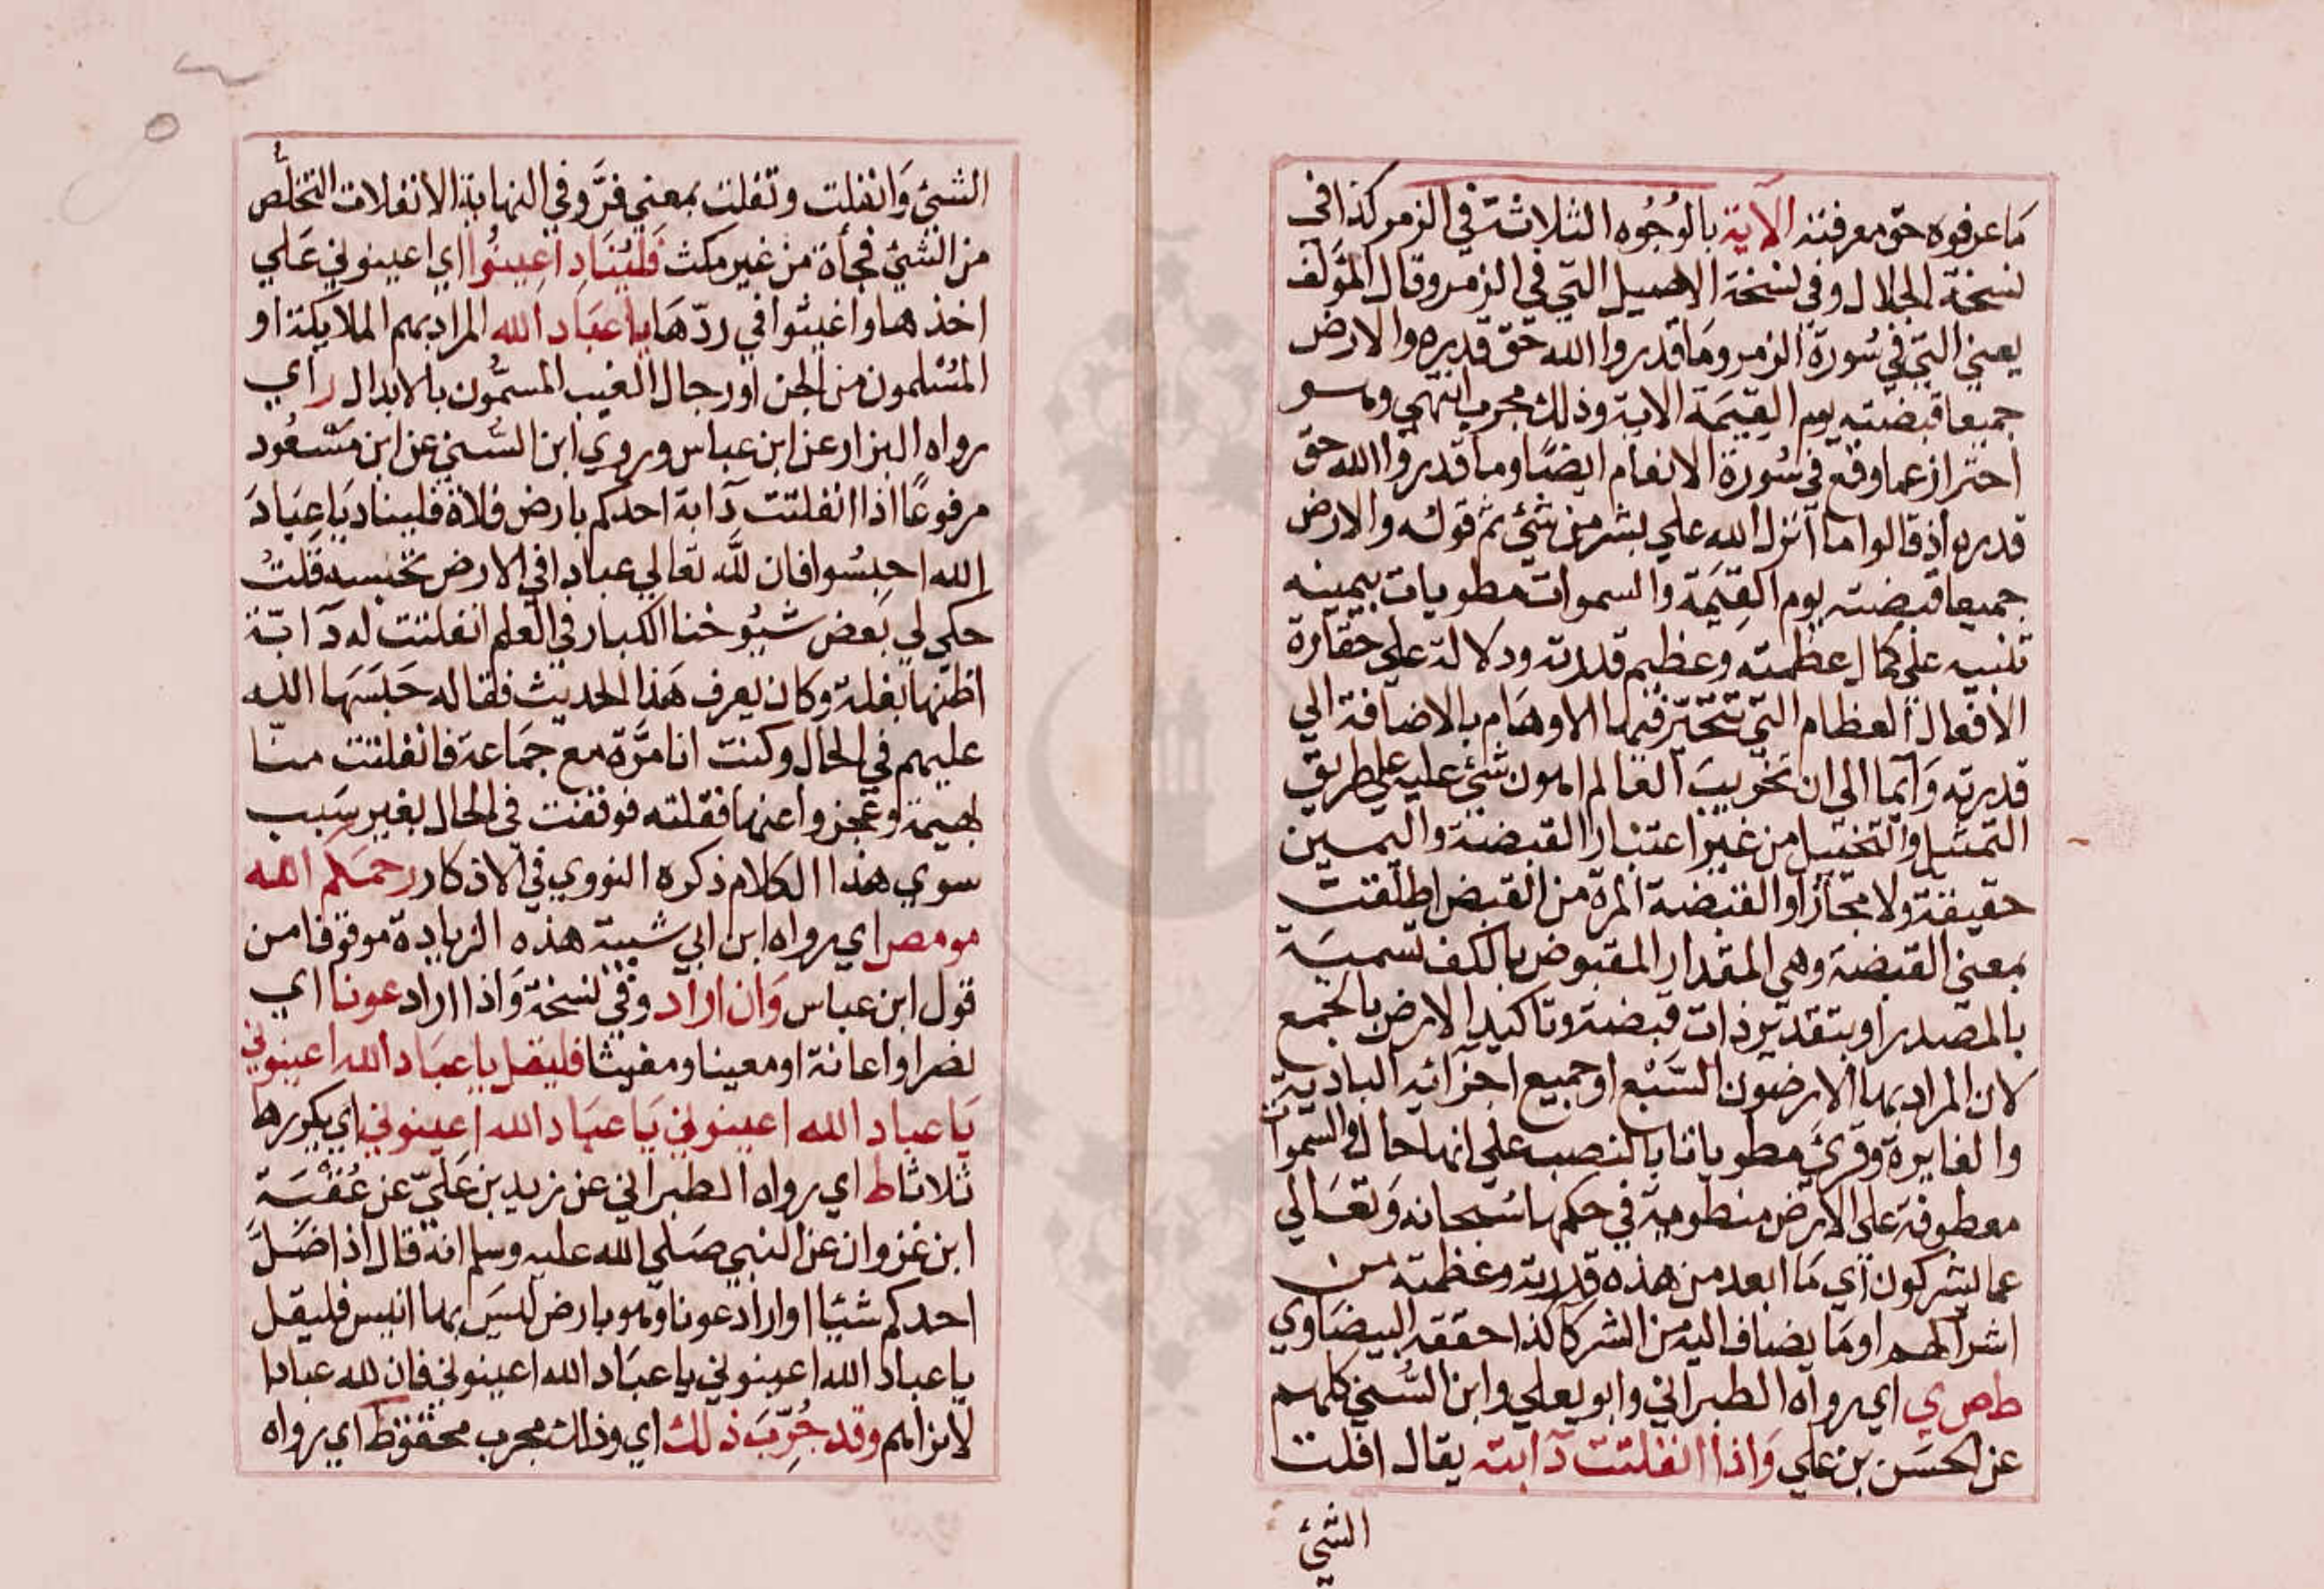 ما عرفوه حق معرفته الآية بالوُجُوه الثلاثة في الزمر كذا في
نسخة الجلال وفي نسخة الاصيل التي في الزمر وقال المؤلف
يعني التي في سُورة الزمر وما قدروا الله حق قدره والارض
جميعا قبضته يوم القيمة الاية وذلك مجرب انتهي وهو
احتراز عما وقع في سُورة الانعام ايضًا وما قدروا الله حق
قدره اذ قالوا ما انزل الله علي بشر من شئ ثم قوله والارض
جميعا قبضته يوم القِيٰمَة والسموات مطويات بيمينه
تنبيه علي كمال عظمته وعظيم قدرته ودلالة علي حقارة
الافعال العظام التي تتحيّر فيها الاوهام بالاضافة الي
قدرته وَايما الي ان تخريبَ العالم اهون شئ عليه علي طريق
التمثيل والتخييل من غير اعتبار القبضة واليمين
حقيقة ولا مجازا والقبضة المرة من القبض اطلقت
بمعني القبضة وهي المقدار المقبوض بالكف تسمية
بالمصدر او بتقدير ذات قبضة وتاكيد الارض بالجمع
لان المراد بها الارضون السَّبْع او جميع اجزائه البادية
والغايرة وقرئ مطويات بالنصب علي انها حال والسموات
معطوفة علي الارض منظومة في حكمها سُبحانه وَتعَالي
عما يشركون اي مَا ابعد من هذه قدرته وعظمته من
اشراكهم او مَا يضاف اليه من الشركا كذا حققه البيضاوي
ط ص ي اي رواه الطبراني وابو يعلي وابن السُّني كلهم
عن الحسَن بن علي وَاذا انفلتت دآبته يقال افلت
الشئ
الشئ وَانفلت وتفلت بمعني فرَّ وفي النهاية الانفلات التخلُّص
من الشئ فجأة من غير مكث فليُنَادِ اَعِينُوا اي اعينوني عَلي
اخذها واغيثوا في ردّهَا يا عبَاد الله المراد بهم الملايكة او
المُسْلمون من الجن او رجال الغيب المسمُّون بالابدال ر اي
رواه البزار عن ابن عباس وروي ابن السُّني عن ابن مَسْعُود
مرفوعًا اذا انفلتت دآبة احدكم بارض فلاة فليناد يَا عِبَادَ
الله احبِسُوا فان للّه تعالي عبادا في الارض تحبسه قلتُ
حكي لي بَعض شيُوخنا الكبار في العلم انفلتت له دآبّة
اظنّها بغلة وكان يعرف هَذا الحديث فقاله حَبَسَهَا الله
عليهم في الحال وكنت انا مرَّة مع جمَاعة فانفلتت منّا
بهيمة وعجزوا عنها فقلته فوقفت في الحال بغير سَبب
سوي هذا الكلام ذكره النووي في الاذكار رحمكم الله
مو مص اي رواه ابن ابي شيبة هذه الزيادة موقوفا من
قول ابن عباس وَان اراد وفي نسخة وَاذا اراد عونا اي
نصرا او اعانة او معينا ومغيثا فليقل يا عبَاد الله اعينوني
يَا عباد الله اعينوني يَا عبَاد الله اعينوني اي يكررها
ثلاثا ط اي رواه الطبراني عن زيد بن عَليّ عن عُتْبَة
ابن غزوان عن النبي صَلي الله عليه وسلم انه قال اذا ضَلَّ
احدكم شيئا او اراد عونا وهو بارض ليسَ بها انيس فليقل
يا عباد الله اعينوني يا عبَاد الله اعينوني فان لله عبادا
لا نراهم وقد جُرِّبَ ذلك اي وذلك مجرب محقق ط اي رواه